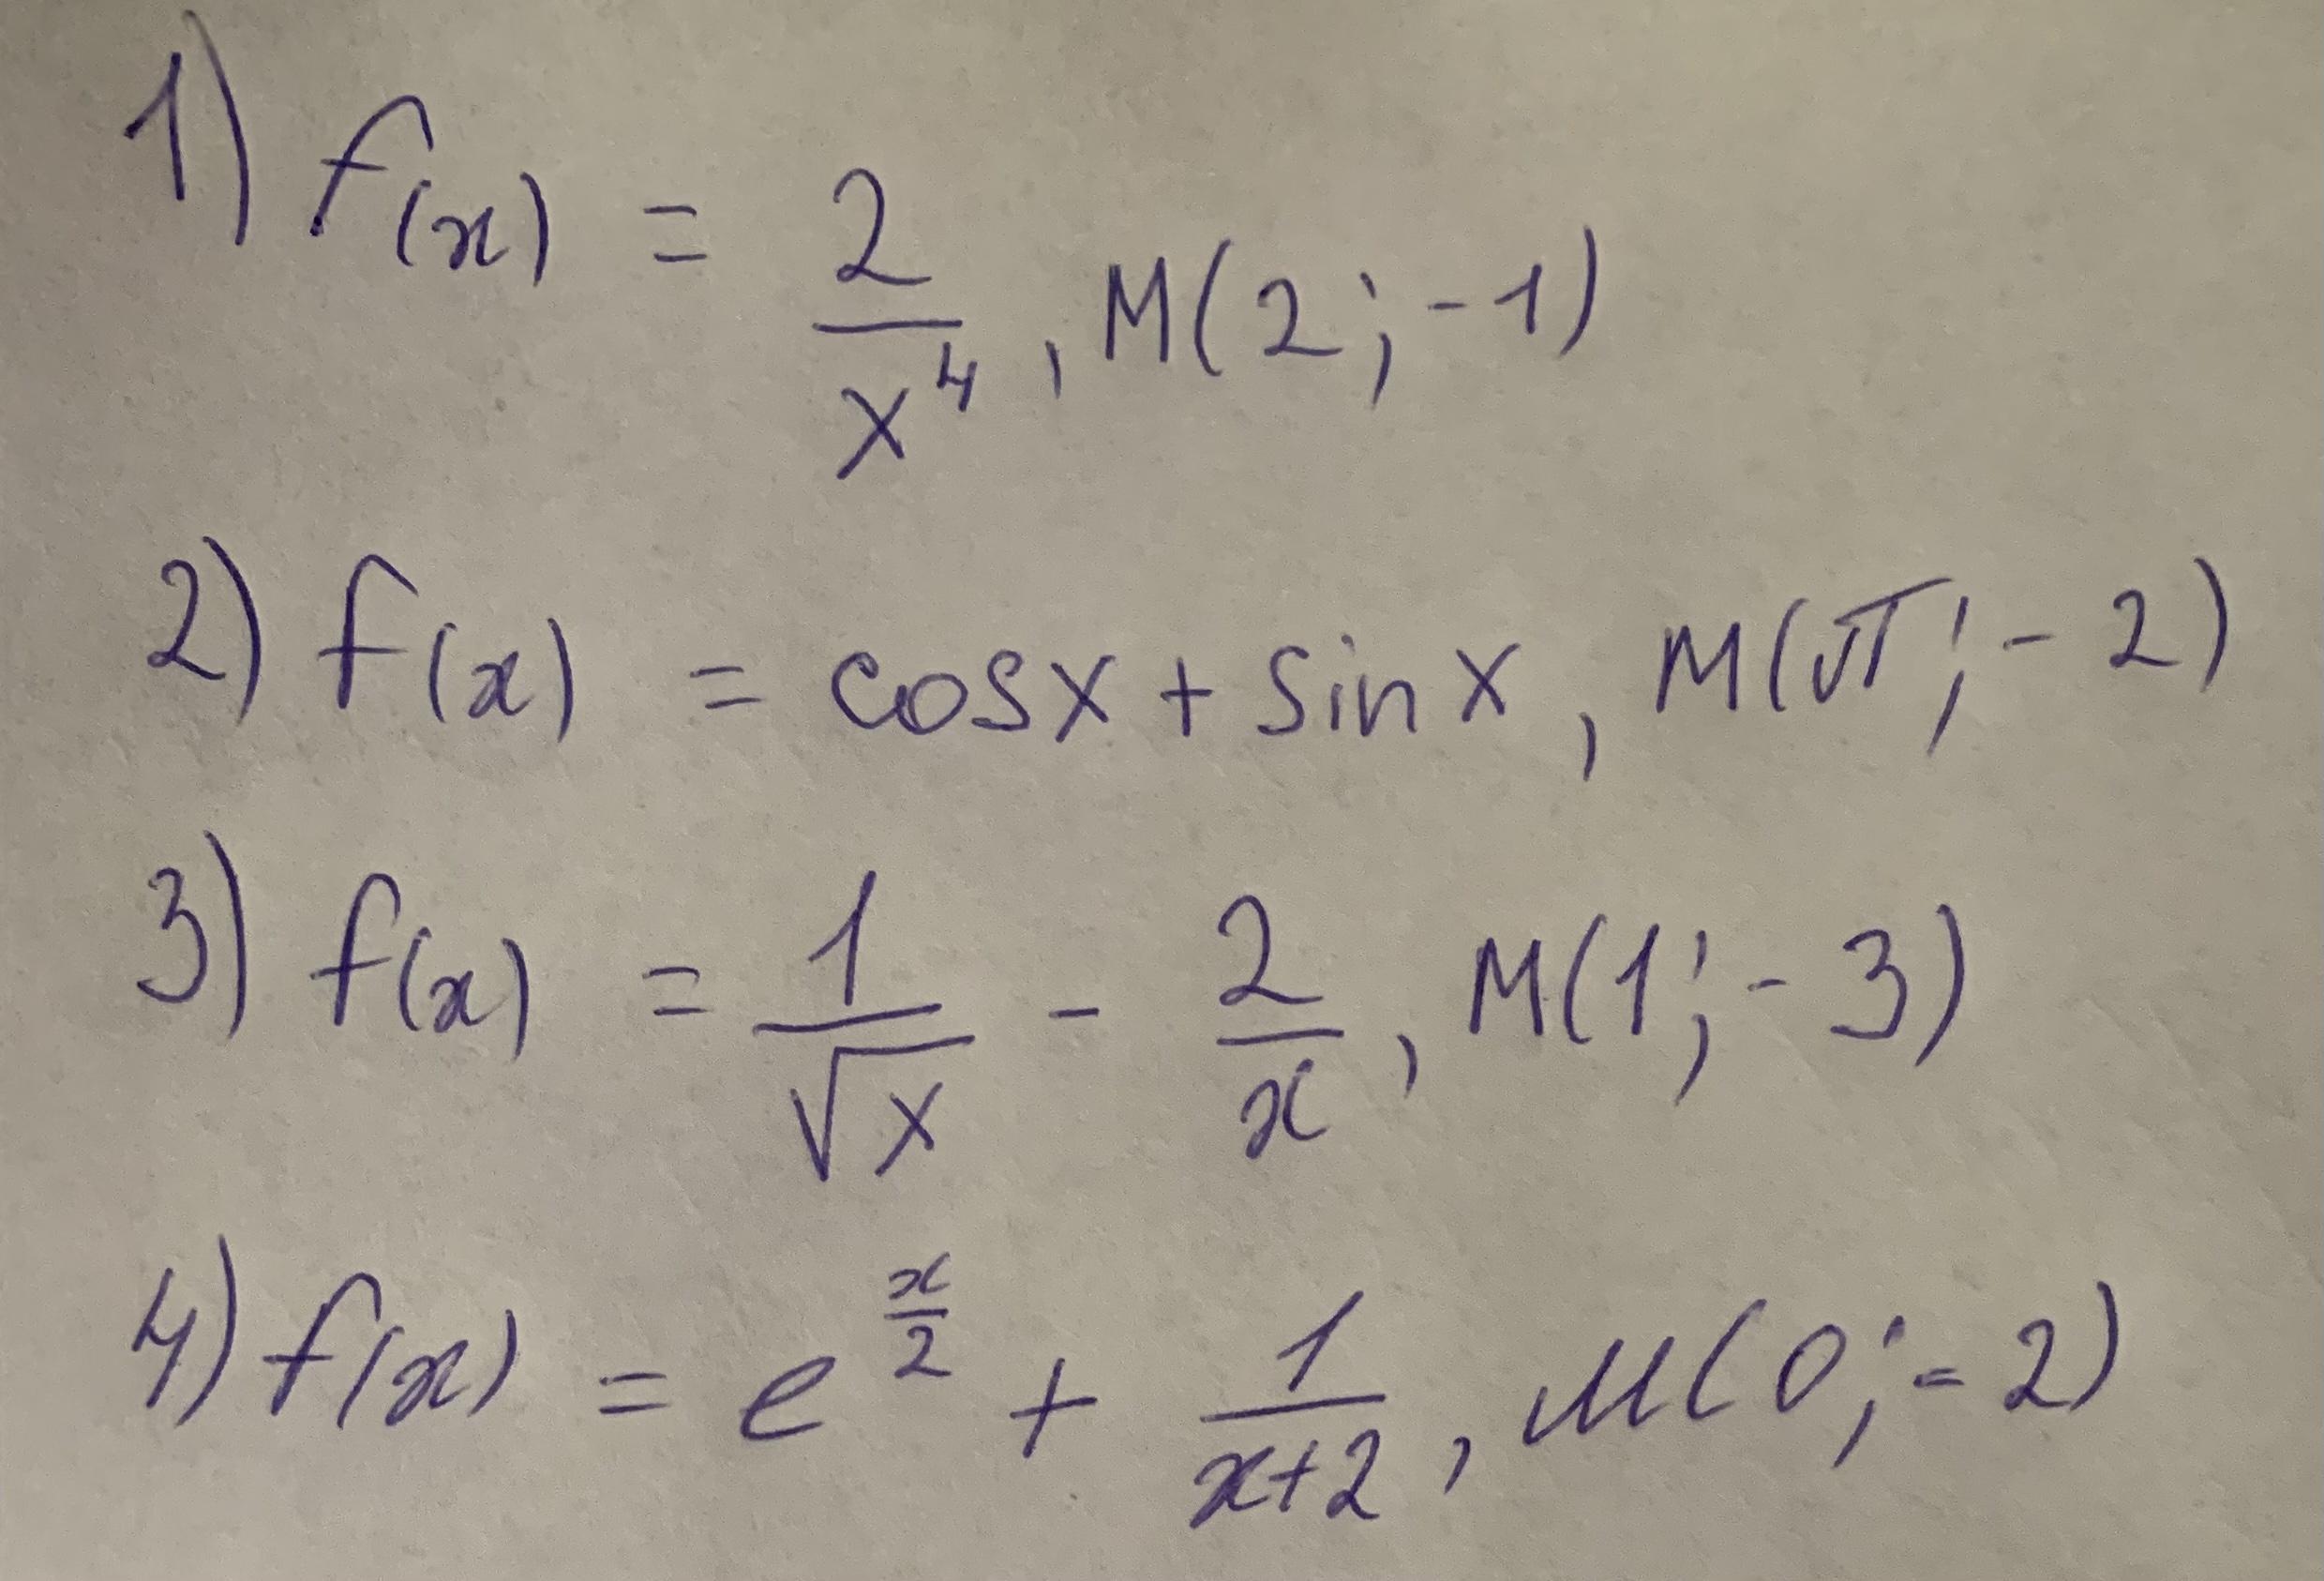 1) f(x) = 2/x⁴, M(2; -1)
2) f(x) = cosx + sinx, M(π; -2)
3) f(x) = 1/√x - 2/x, M(1; -3)
4) f(x) = e^(x/2) + 1/(x+2), M(0; -2)